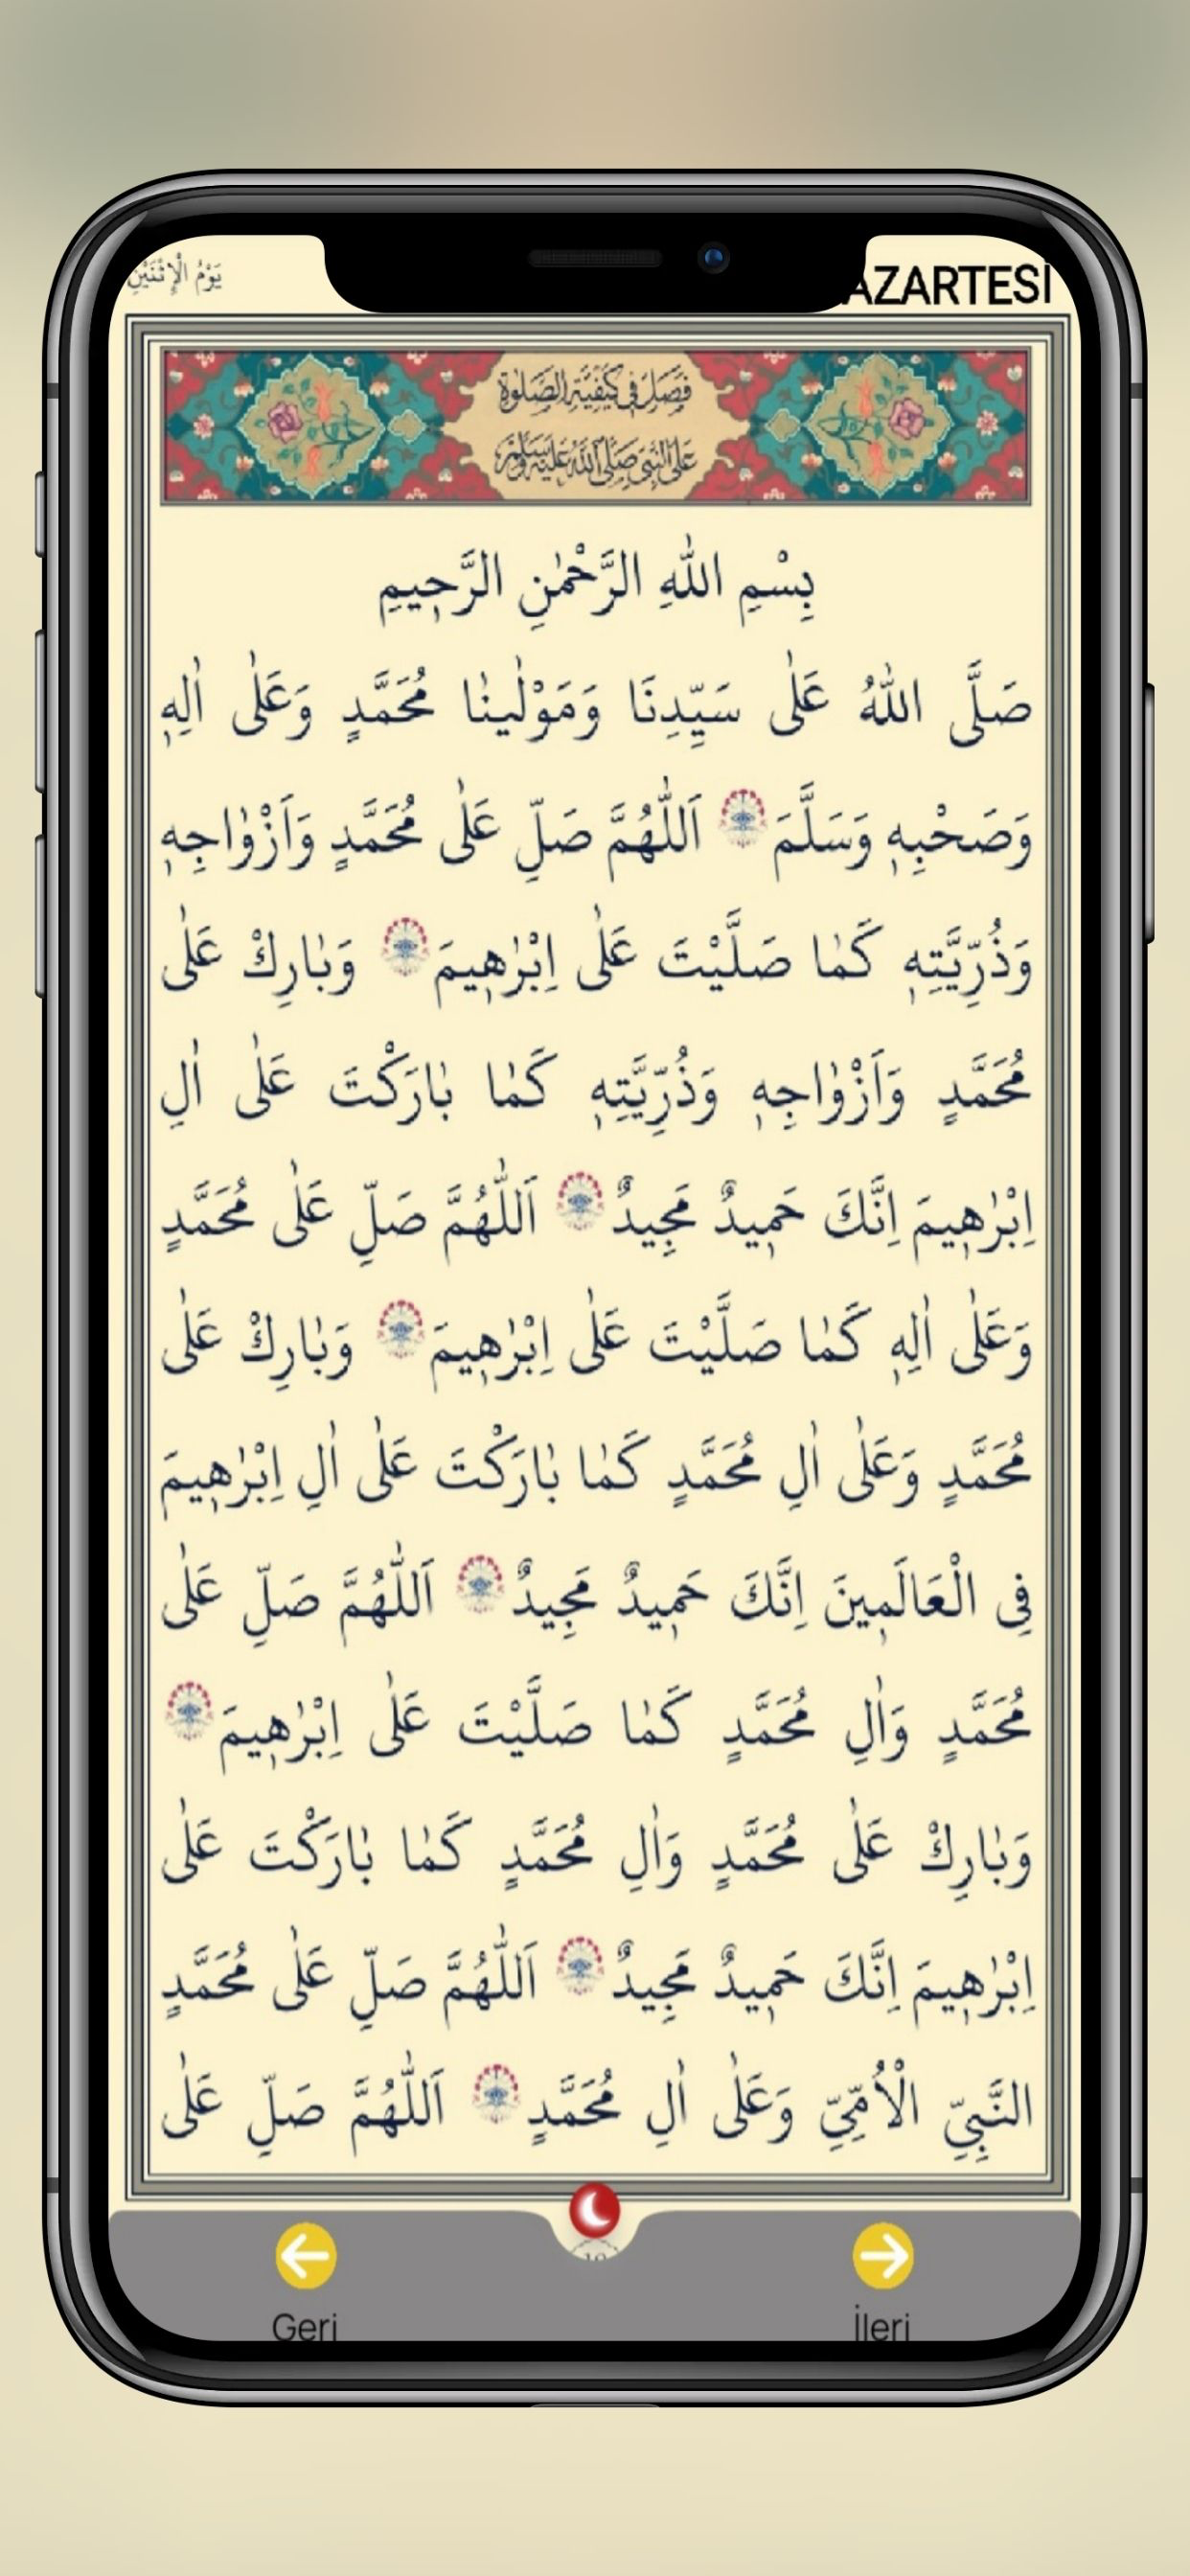 يَوْمُ الْاِثْنَيْنِ
AZARTESİ
فَصْلٌ فِي كَيْفِيَّةِ الصَّلٰوةِ
عَلَى النَّبِيِّ صَلَّى اللّٰهُ عَلَيْهِ وَسَلَّمَ
بِسْمِ اللّٰهِ الرَّحْمٰنِ الرَّحِيمِ
صَلَّى اللّٰهُ عَلٰى سَيِّدِنَا وَمَوْلٰينٰا مُحَمَّدٍ وَعَلٰى اٰلِهٖ
وَصَحْبِهٖ وَسَلَّمَ اَللّٰهُمَّ صَلِّ عَلٰى مُحَمَّدٍ وَاَزْوٰاجِهٖ
وَذُرِّيَّتِهٖ كَمٰا صَلَّيْتَ عَلٰى اِبْرٰهٖيمَ وَبٰارِكْ عَلٰى
مُحَمَّدٍ وَاَزْوٰاجِهٖ وَذُرِّيَّتِهٖ كَمٰا بٰارَكْتَ عَلٰى اٰلِ
اِبْرٰهٖيمَ اِنَّكَ حَمٖيدٌ مَجِيدٌ اَللّٰهُمَّ صَلِّ عَلٰى مُحَمَّدٍ
وَعَلٰى اٰلِهٖ كَمٰا صَلَّيْتَ عَلٰى اِبْرٰهٖيمَ وَبٰارِكْ عَلٰى
مُحَمَّدٍ وَعَلٰى اٰلِ مُحَمَّدٍ كَمٰا بٰارَكْتَ عَلٰى اٰلِ اِبْرٰهٖيمَ
فِى الْعَالَمٖينَ اِنَّكَ حَمٖيدٌ مَجِيدٌ اَللّٰهُمَّ صَلِّ عَلٰى
مُحَمَّدٍ وَاٰلِ مُحَمَّدٍ كَمٰا صَلَّيْتَ عَلٰى اِبْرٰهٖيمَ
وَبٰارِكْ عَلٰى مُحَمَّدٍ وَاٰلِ مُحَمَّدٍ كَمٰا بٰارَكْتَ عَلٰى
اِبْرٰهٖيمَ اِنَّكَ حَمٖيدٌ مَجِيدٌ اَللّٰهُمَّ صَلِّ عَلٰى مُحَمَّدٍ
النَّبِيِّ الْاُمِّيِّ وَعَلٰى اٰلِ مُحَمَّدٍ اَللّٰهُمَّ صَلِّ عَلٰى
Geri
İleri